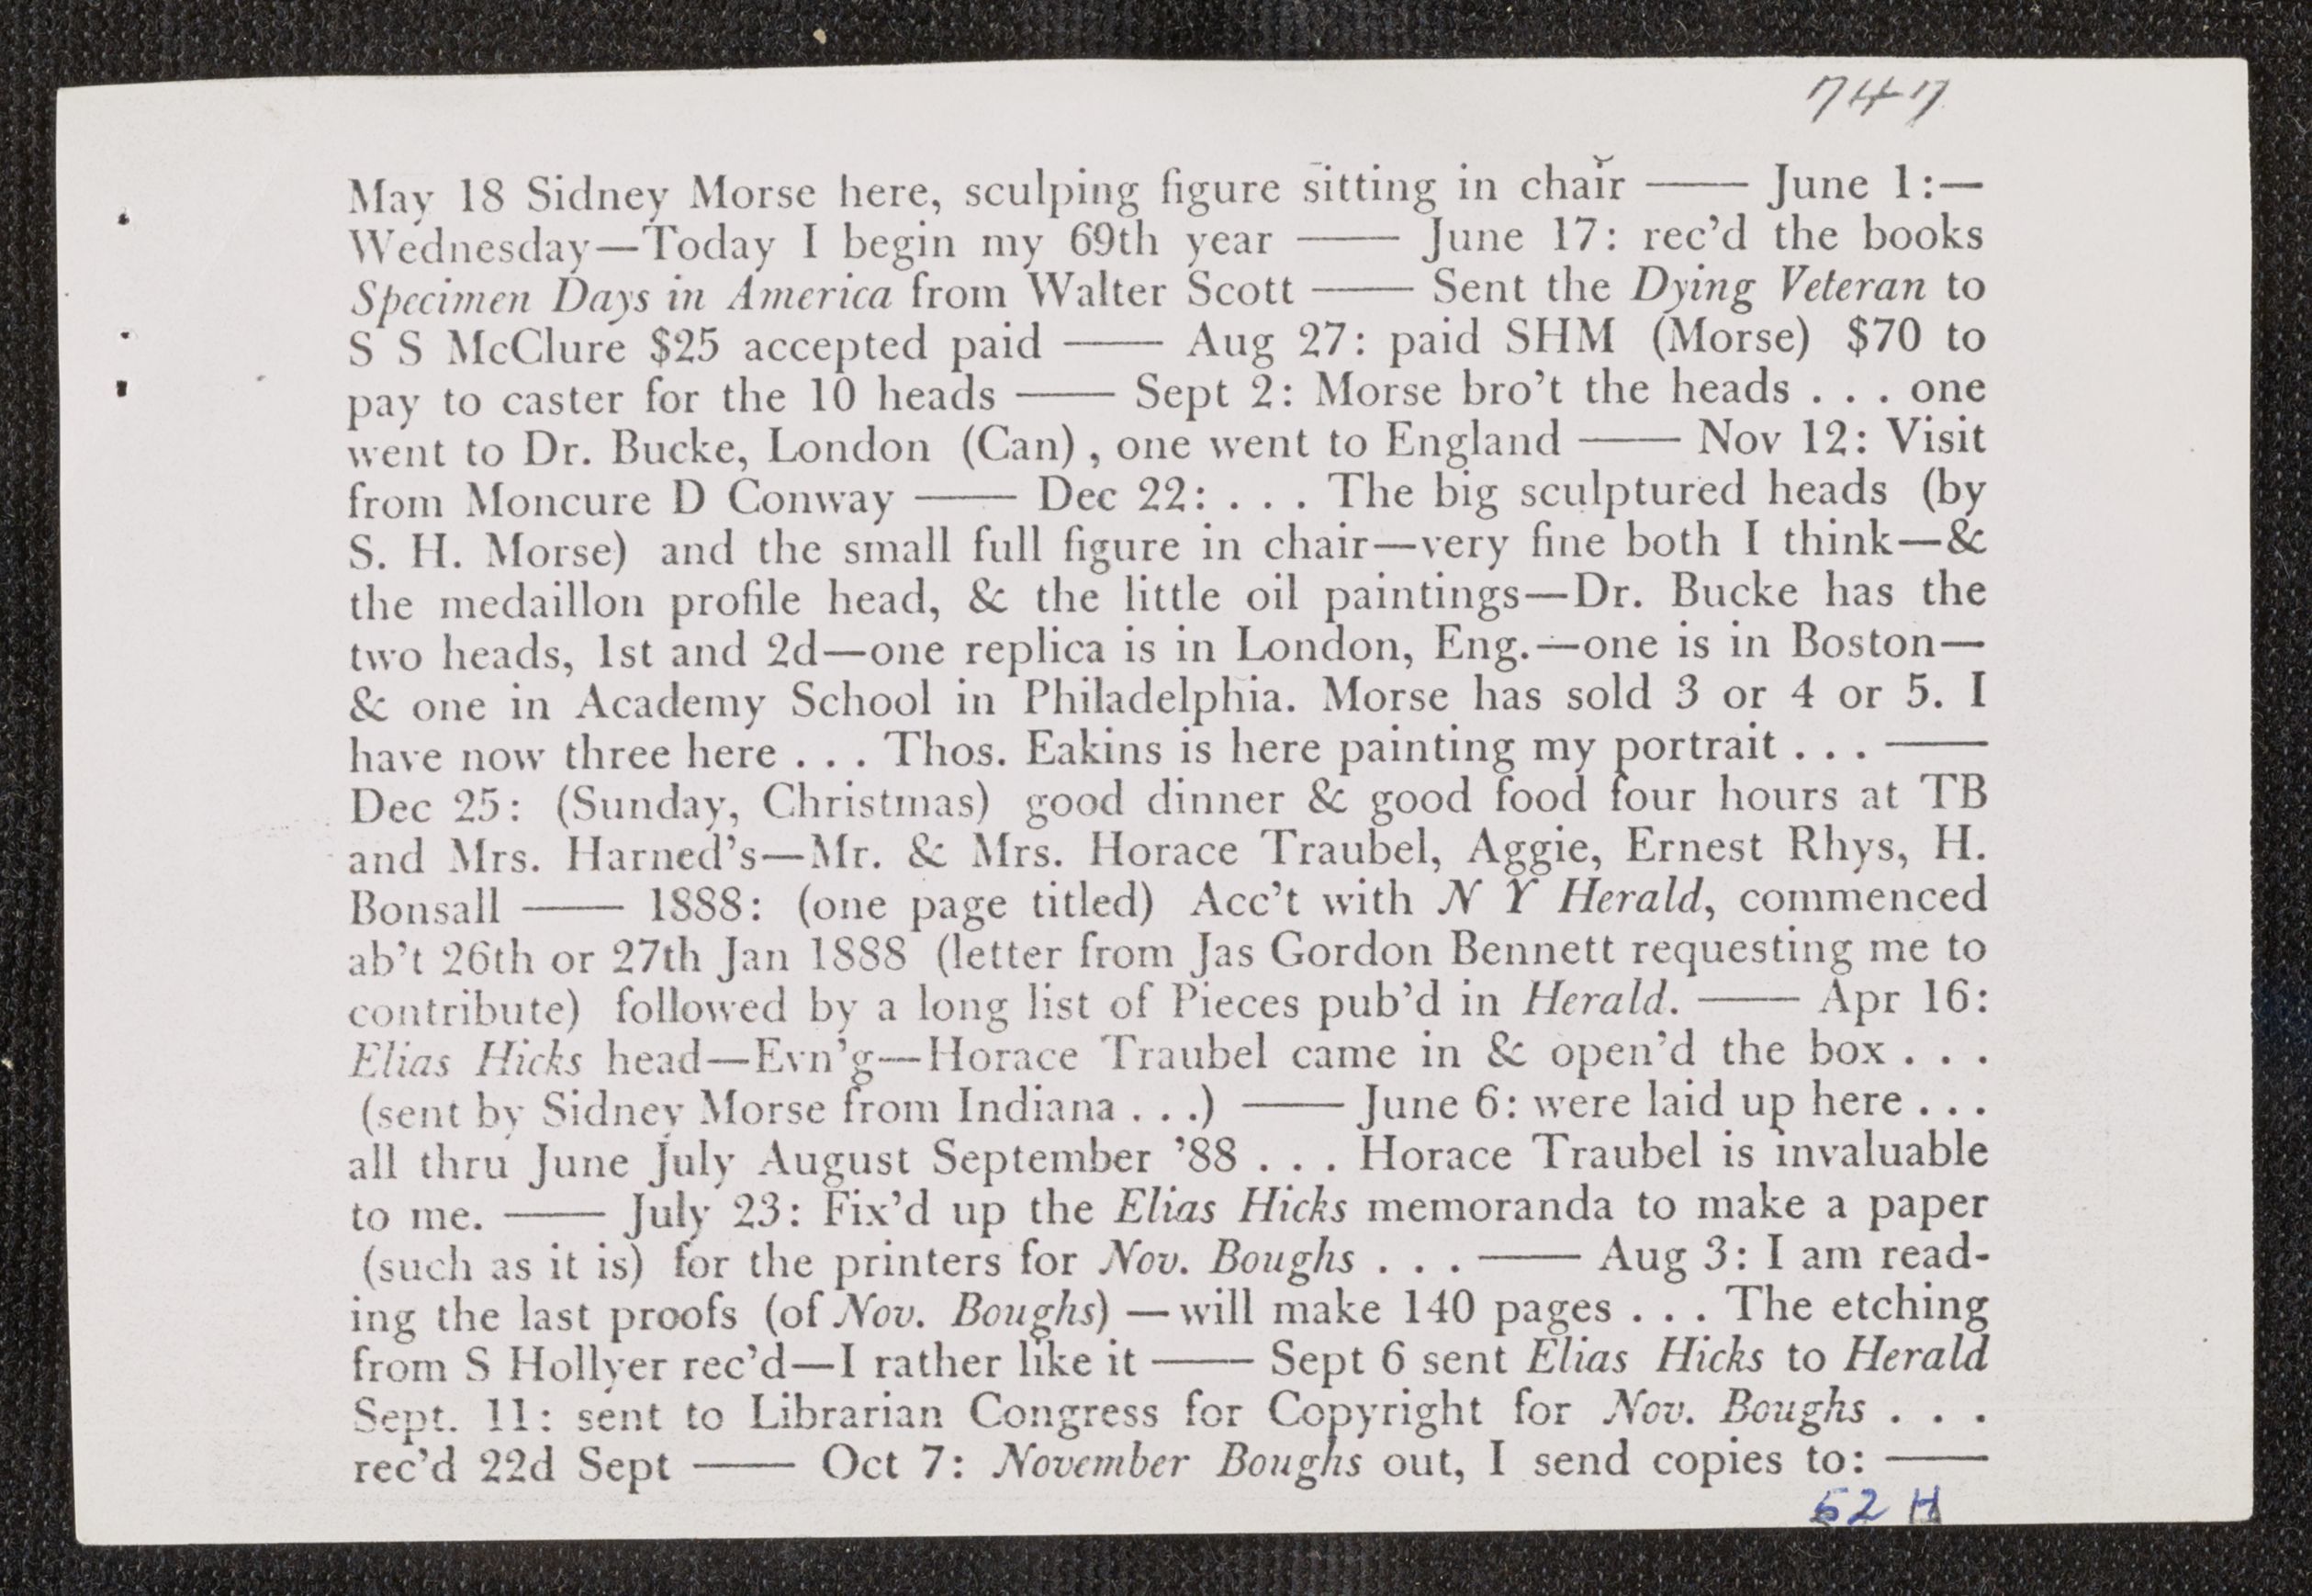 747
May 18 Sidney Morse here, sculping figure sitting in chair —— June 1:—
Wednesday—Today I begin my 69th year —— June 17: rec'd the books
Specimen Days in America from Walter Scott —— Sent the Dying Veteran to
S S McClure $25 accepted paid —— Aug 27: paid SHM (Morse) $70 to
pay to caster for the 10 heads —— Sept 2: Morse bro't the heads . . . one
went to Dr. Bucke, London (Can), one went to England —— Nov 12: Visit
from Moncure D Conway —— Dec 22: . . . The big sculptured heads (by
S. H. Morse) and the small full figure in chair—very fine both I think—&
the medaillon profile head, & the little oil paintings—Dr. Bucke has the
two heads, 1st and 2d—one replica is in London, Eng.—one is in Boston—
& one in Academy School in Philadelphia. Morse has sold 3 or 4 or 5. I
have now three here . . . Thos. Eakins is here painting my portrait . . . ——
Dec 25: (Sunday, Christmas) good dinner & good food four hours at TB
and Mrs. Harned's—Mr. & Mrs. Horace Traubel, Aggie, Ernest Rhys, H.
Bonsall —— 1888: (one page titled) Acc't with N Y Herald, commenced
ab't 26th or 27th Jan 1888 (letter from Jas Gordon Bennett requesting me to
contribute) followed by a long list of Pieces pub'd in Herald. —— Apr 16:
Elias Hicks head—Evn'g—Horace Traubel came in & open'd the box . . .
(sent by Sidney Morse from Indiana . . .) —— June 6: were laid up here . . .
all thru June July August September '88 . . . Horace Traubel is invaluable
to me. —— July 23: Fix'd up the Elias Hicks memoranda to make a paper
(such as it is) for the printers for Nov. Boughs . . . —— Aug 3: I am read-
ing the last proofs (of Nov. Boughs) —will make 140 pages . . . The etching
from S Hollyer rec'd—I rather like it —— Sept 6 sent Elias Hicks to Herald
Sept. 11: sent to Librarian Congress for Copyright for Nov. Boughs . . .
rec'd 22d Sept —— Oct 7: November Boughs out, I send copies to: ——
52 H